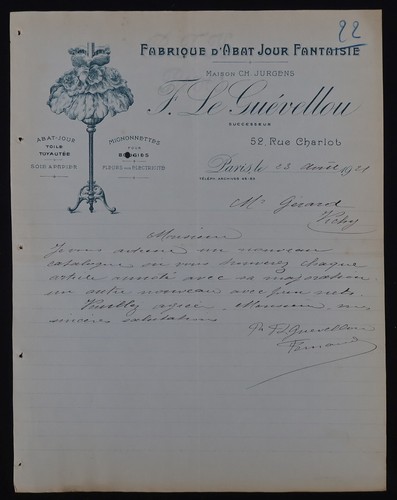 22
FABRIQUE D'ABAT JOUR FANTAISIE
MAISON CH. JURGENS
F. Le Guévellou
SUCCESSEUR
52, Rue Charlot
ABAT-JOUR
TOILE
TUYAUTÉE
SOIE & PAPIER
MIGNONNETTES
POUR
BOUGIES
FLEURS POUR ELECTRICITÉ
Paris, le 23 août 1921
TÉLÉPH. ARCHIVES
Mr Gérard
Vichy
Monsieur
Je vous adresse un nouveau
catalogue où vous trouverez chaque
article annoté avec sa majoration
un autre nouveau avec
Veuillez agréer Monsieur mes
sincères salutations